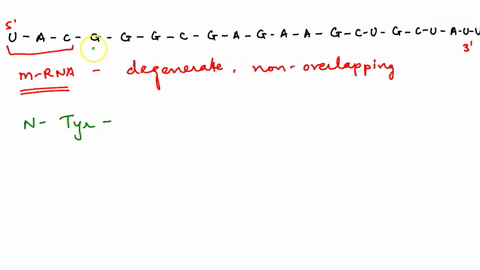 5'
U - A - C - G - G - G - C - G - A - G - A - A - G - C - U - G - C - U - A - U - U
3'
m-RNA - degenerate, non-overlapping
N- Tyr -